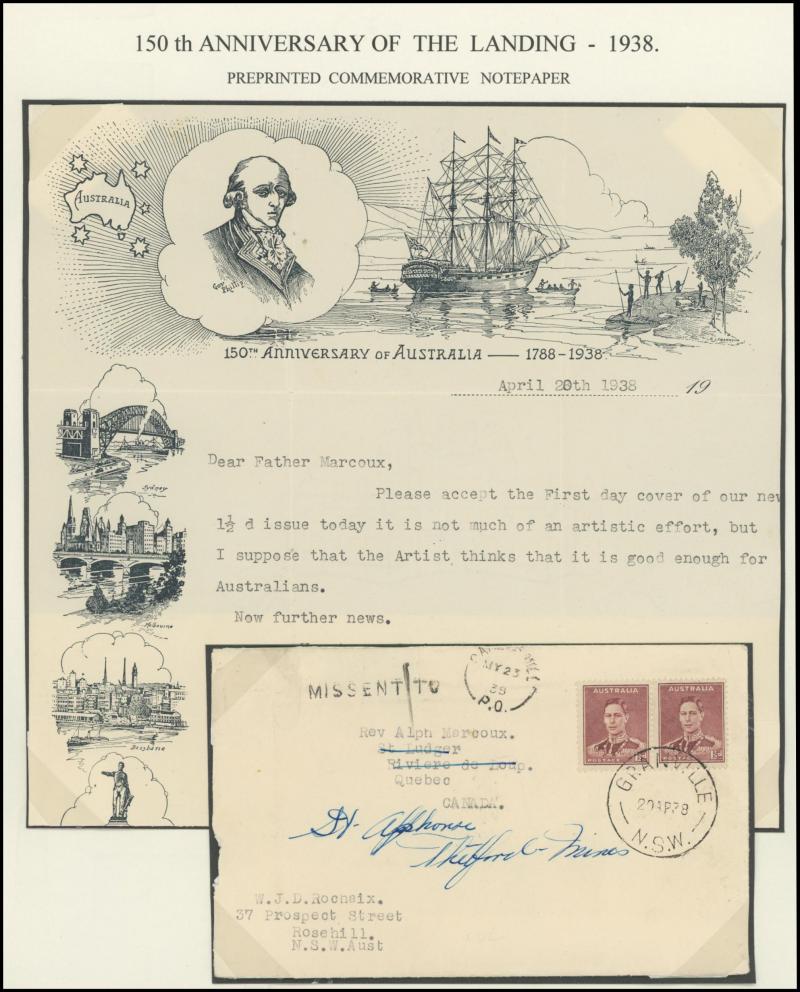 150 th ANNIVERSARY OF THE LANDING - 1938.
PREPRINTED COMMEMORATIVE NOTEPAPER
AUSTRALIA
Gov Phillip
150TH ANNIVERSARY OF AUSTRALIA — 1788-1938
April 20th 1938 19
Sydney
Melbourne
Brisbane
Dear Father Marcoux,
Please accept the First day cover of our new
1½ d issue today it is not much of an artistic effort, but
I suppose that the Artist thinks that it is good enough for
Australians.
Now further news.
MISSENT TO
MY 23
38
P.O.
AUSTRALIA
POSTAGE
AUSTRALIA
Rev Alph Marcoux.
St Ludger
Riviere de Loup.
Quebec
CANADA.
GRANVILLE
20AP38
N.S.W.
St. Alphonse
Thetford Mines
W.J.D.Rochaix.
37 Prospect Street
Rosehill.
N.S.W.Aust